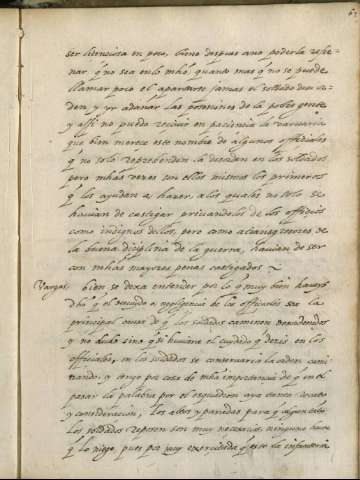 ser licensiosa en poco, como despues aura poderla refre
nar q̃ no sea en lo mho, quanto mas q̃ no se puede
llamar poco el apartarse jamas el soldado de su or
den y yr a danar las de la pobre gente
y assi no puedo reçiuir en paciencia la
que bien merece este nombre de algunos officiales
q̃ no solo reprehenden la en los soldados
pero mhas vezes son ellos mismos los primeros
q̃ los ayudan a hazer, a los quales no solo se
hauian de castigar priuandolos de los officios
como indignos dellos, pero como
de la buena diciplina de la guerra, hauian de ser
con mhas mayores penas castigados
Vargas bien se dexa entender por lo q̃ muy bien haueis
dho q̃ el descuido o negligencia de los officiales sea la
principal causa de q̃ los soldados caminen desordenados
y no dudo sino q̃ si huuiera el cuydado q̃ dezis en los
officiales, en los soldados se conseruaria la orden cami
nando, y tengo por cosa de mha importancia q̃ en el
pasar la palabra por el esquadron aya tanta cuenta
y consideracion, los altos y paradas para q̃
los soldados reposen son muy necesarias ninguno
q̃ lo niegue, pues por muy exercitada q̃ este la infanteria